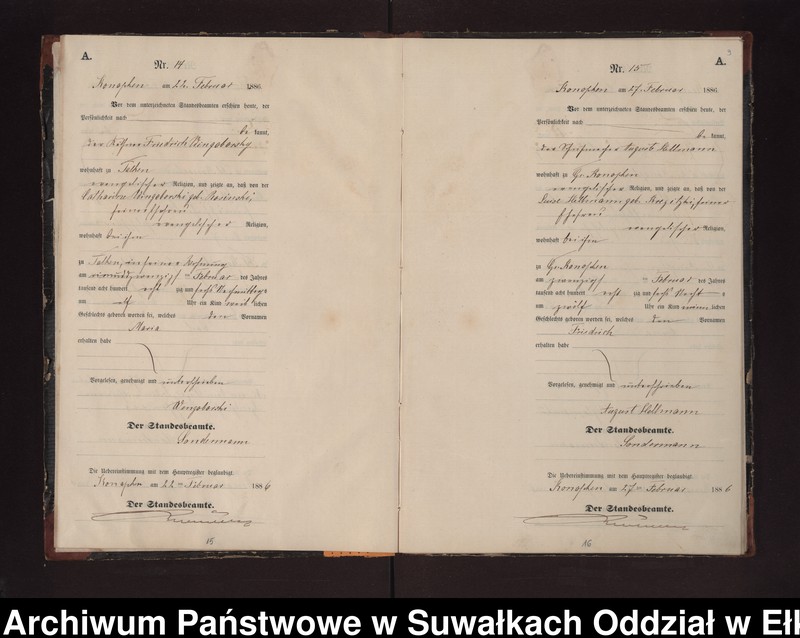 A.
Nr. 14
Konophen am 22. Februar 1886.
Vor dem unterzeichneten Standesbeamten erschien heute, der
Persönlichkeit nach
be kannt,
der Friedrich
wohnhaft zu
evangelischer Religion, und zeigte an, daß von der
Catharina geb.
evangelischer Religion,
wohnhaft bei ihm
zu in seiner Wohnung
am Februar des Jahres
tausend acht hundert acht zig und sechs Vormittags
um Uhr ein Kind weib lichen
Geschlechts geboren worden sei, welches den Vornamen
Maria
erhalten habe
Vorgelesen, genehmigt und unterschrieben
Der Standesbeamte.
Sondermann
Die Uebereinstimmung mit dem Hauptregister beglaubigt
Konophen am 22ten Februar 1886
Der Standesbeamte.
15
A.
Nr. 15
Konophen am 27. Februar 1886.
Vor dem unterzeichneten Standesbeamten erschien heute, der
Persönlichkeit nach
be kannt,
der Schuhmacher August Hellmann
wohnhaft zu Gr. Konophen
evangelischer Religion, und zeigte an, daß von der
Luise Hellmann geb. seiner
Ehefrau
evangelischer Religion,
wohnhaft bei ihm
zu Gr. Konophen
am Februar des Jahres
tausend acht hundert acht zig und sechs
um zwölf Uhr ein Kind männ lichen
Geschlechts geboren worden sei, welches den Vornamen
Friedrich
erhalten habe
Vorgelesen, genehmigt und unterschrieben
August Hellmann
Der Standesbeamte.
Sondermann
Die Uebereinstimmung mit dem Hauptregister beglaubigt
Konophen am 27ten Februar 1886
Der Standesbeamte.
16
Archiwum Państwowe w Suwałkach Oddział w Eł